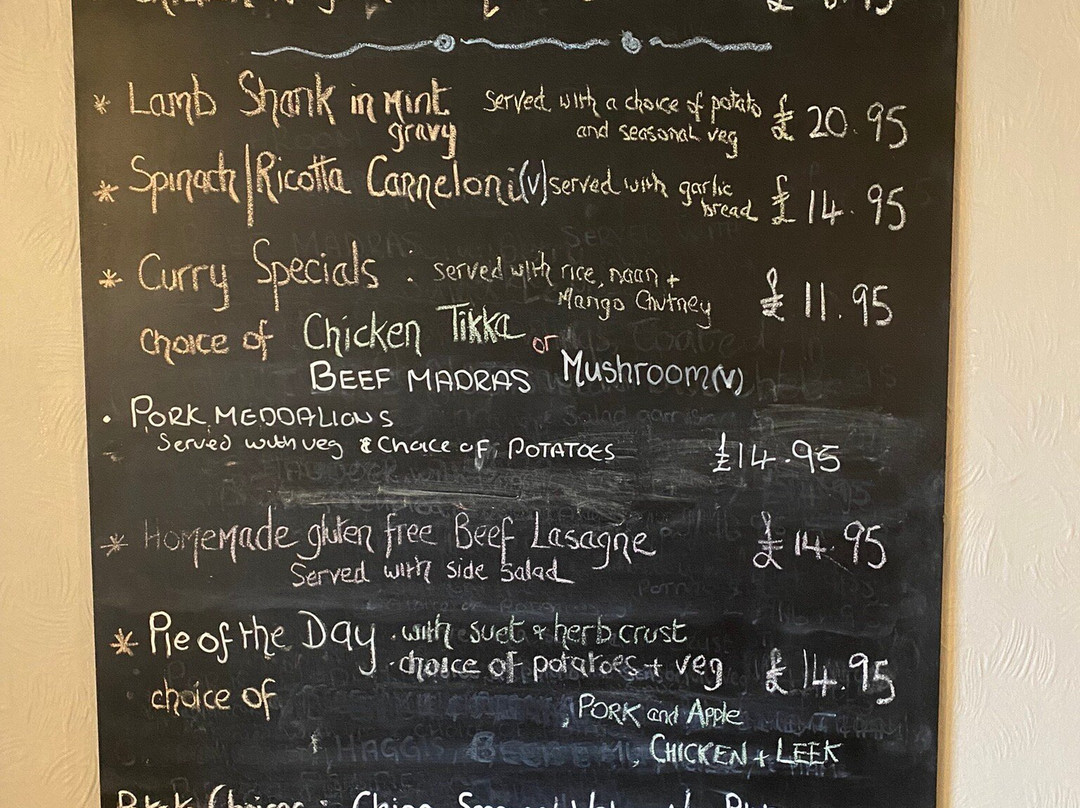 * Lamb Shank in Mint gravy served with a choice of potato and seasonal veg £ 20.95
* Spinach/Ricotta Canneloni (v) served with garlic bread £ 14.95
* Curry Specials : served with rice, naan + Mango Chutney £ 11.95
choice of Chicken Tikka or
BEEF MADRAS Mushroom (v)
· PORK MEDDALIONS
Served with veg & Choice of POTATOES £14.95
* Homemade gluten free Beef Lasagne £ 14.95
Served with side salad
* Pie of the Day · with suet & herb crust
· choice of potatoes + veg £ 14.95
choice of
PORK and Apple
CHICKEN + LEEK